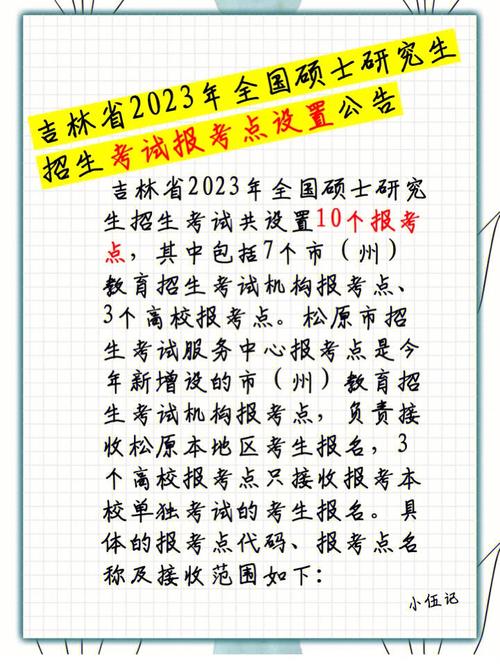 吉林省2023年全国硕士研究生
招生考试报考点设置公告
吉林省2023年全国硕士研究
生招生考试共设置10个报考
点，其中包括7个市（州）
教育招生考试机构报考点、
3个高校报考点。松原市招
生考试服务中心报考点是今
年新增设的市（州）教育招
生考试机构报考点，负责接
收松原本地区考生报名，3
个高校报考点只接收报考本
校单独考试的考生报名。具
体的报考点代码、报考点名
称及接收范围如下：
小伍记